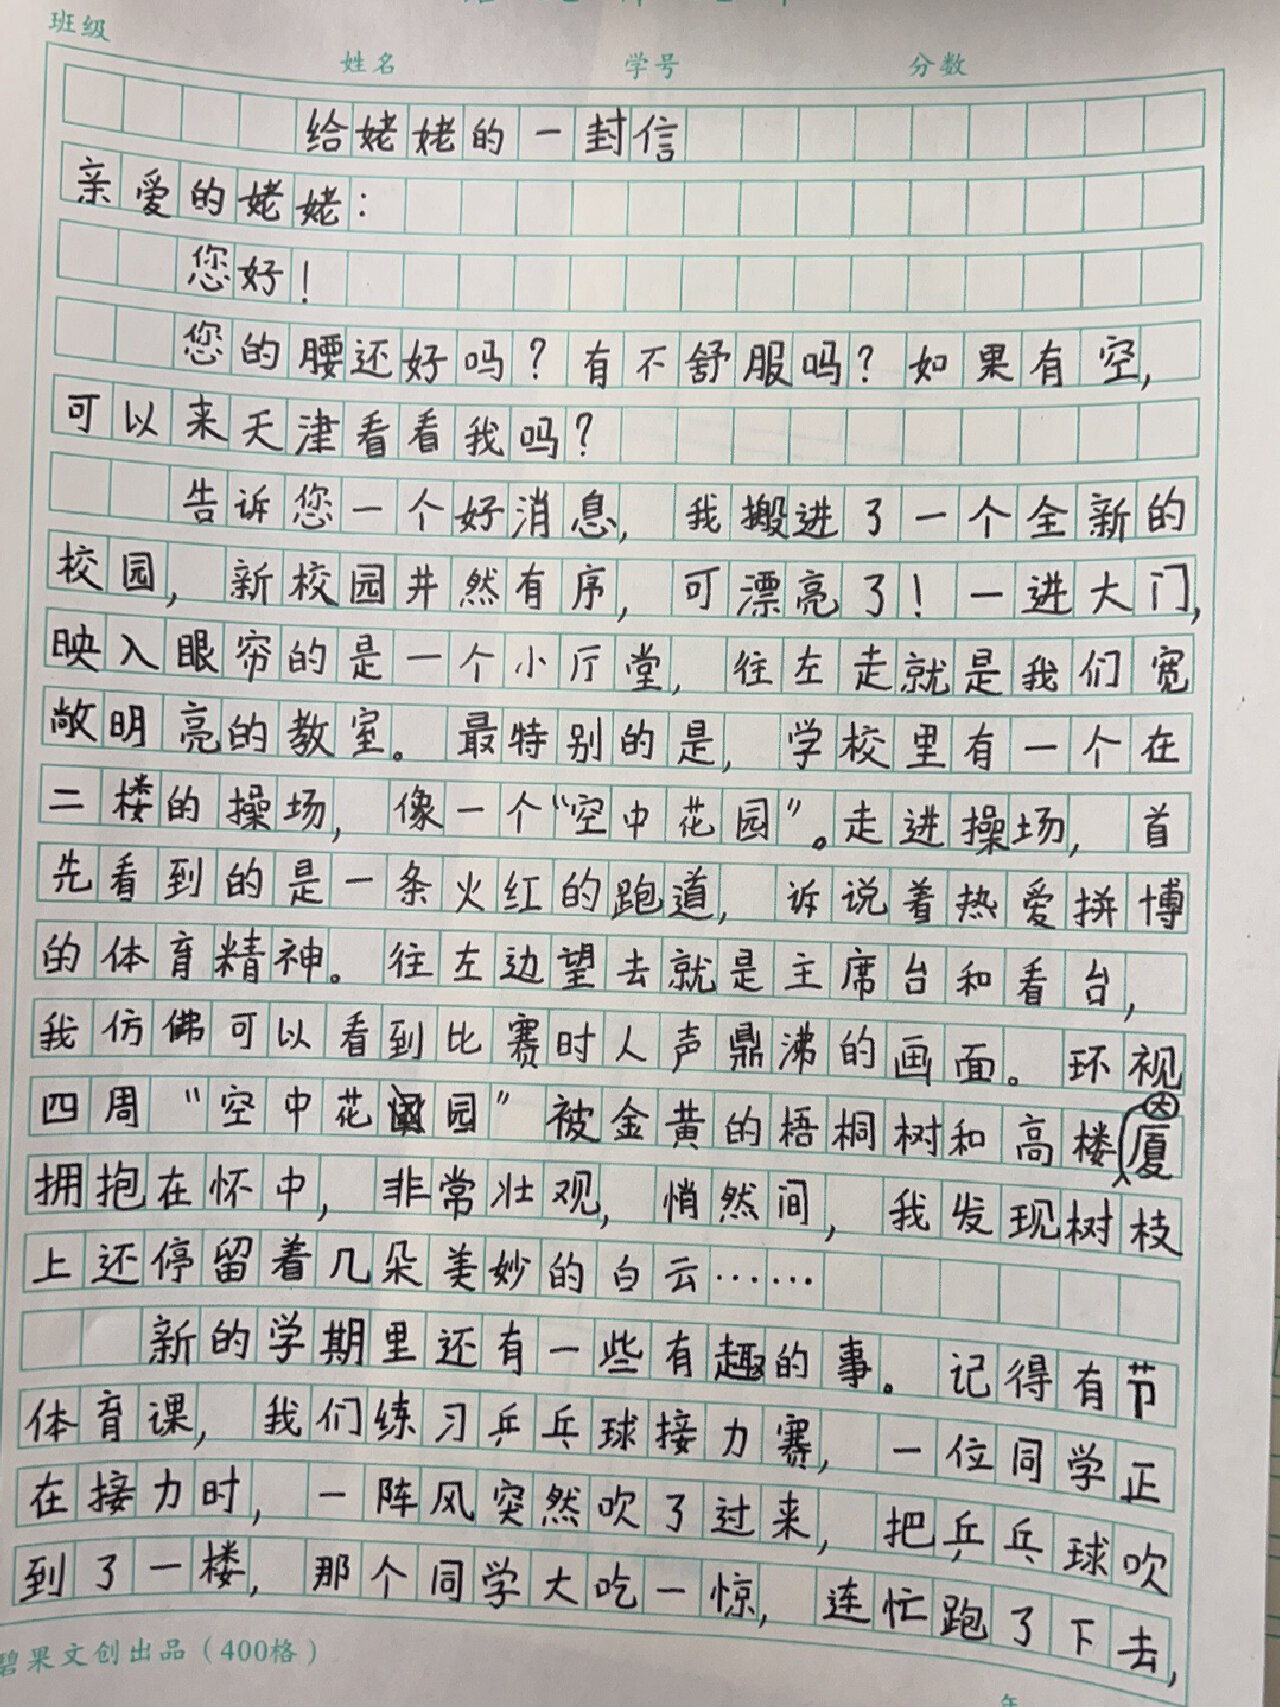 班级 姓名 学号 分数
给姥姥的一封信
亲爱的姥姥：
您好！
您的腰还好吗？有不舒服吗？如果有空，
可以来天津看看我吗？
告诉您一个好消息，我搬进了一个全新的
校园，新校园井然有序，可漂亮了！一进大门，
映入眼帘的是一个小厅堂，往左走就是我们宽
敞明亮的教室。最特别的是，学校里有一个在
二楼的操场，像一个“空中花园”。走进操场，首
先看到的是一条火红的跑道，诉说着热爱拼博
的体育精神。往左边望去就是主席台和看台，
我仿佛可以看到比赛时人声鼎沸的画面。环视
四周“空中花园”被金黄的梧桐树和高楼大厦
拥抱在怀中，非常壮观，悄然间，我发现树枝
上还停留着几朵美妙的白云……
新的学期里还有一些有趣的事。记得有节
体育课，我们练习乒乓球接力赛，一位同学正
在接力时，一阵风突然吹了过来，把乒乓球吹
到了一楼，那个同学大吃一惊，连忙跑了下去，
碧果文创出品（400格）